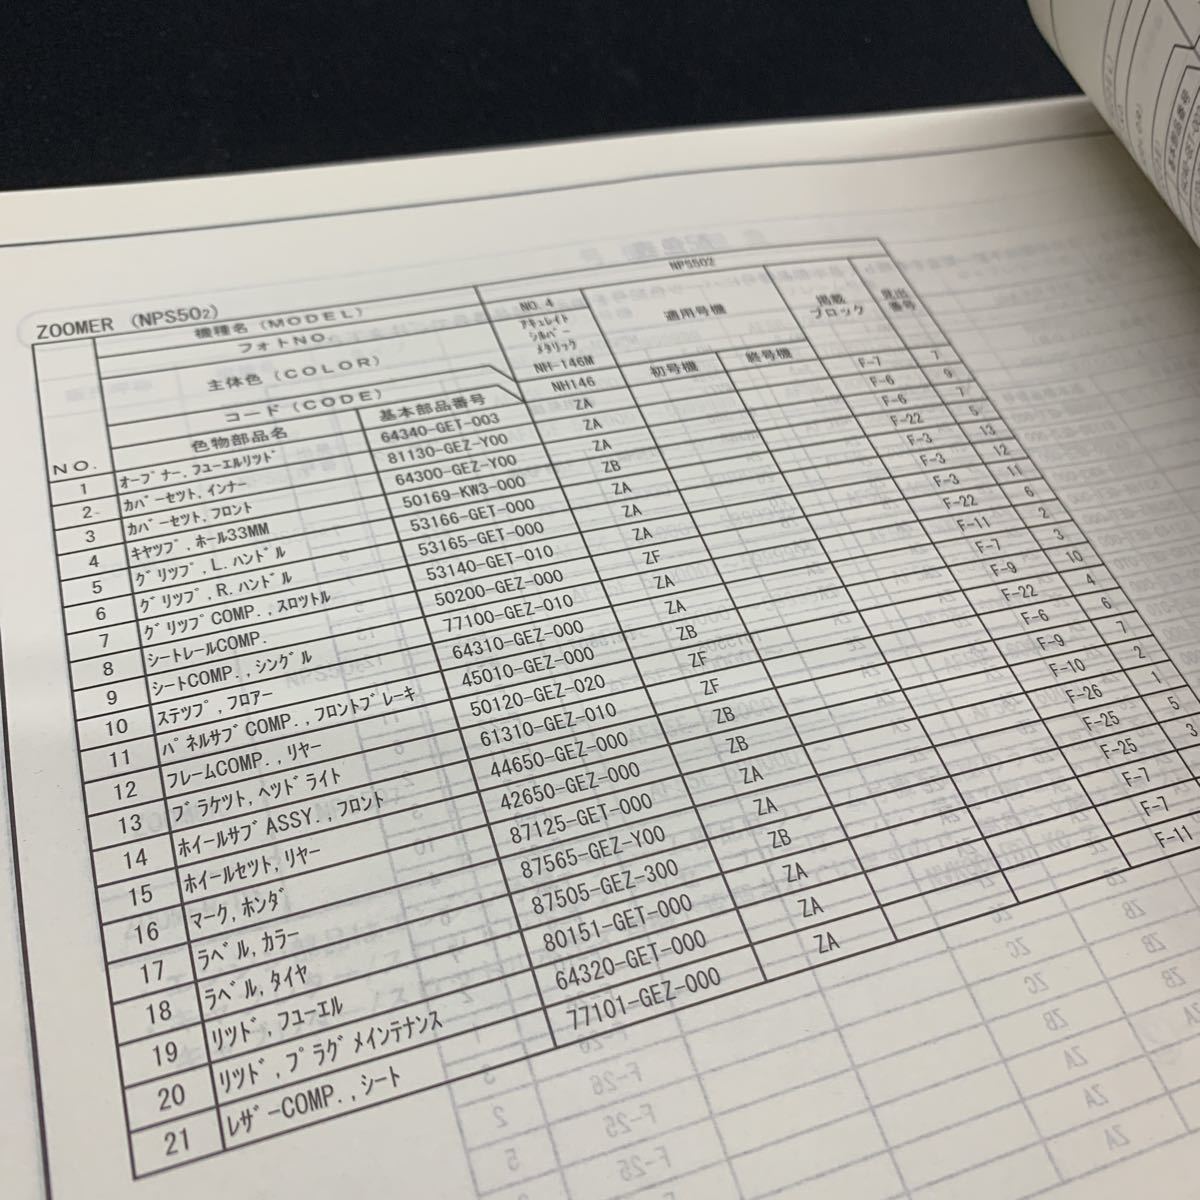 ZOOMER (NPS50₂)
機種名 (MODEL) NPS502
フォトNO. NO. 4 適用号機 掲載ブロック 見出番号
主体色 (COLOR) アキュレイト シルバー メタリック NH-146M
コード (CODE) NH146 初号機 終号機
NO. 色物部品名 基本部品番号
1 オープナー,フューエルリッド 64340-GET-003 ZA F-7 7
2 カバーセット,インナー 81130-GEZ-Y00 ZA F-6 9
3 カバーセット,フロント 64300-GEZ-Y00 ZA F-6 7
4 キヤップ,ホール33MM 50169-KW3-000 ZB F-22 5
5 グリップ,L.ハンドル 53166-GET-000 ZA F-3 13
6 グリップ,R.ハンドル 53165-GET-000 ZA F-3 12
7 グリップCOMP.,スロットル 53140-GET-010 ZA F-3 11
8 シートレールCOMP. 50200-GEZ-000 ZF F-22 6
9 シートCOMP.,シングル 77100-GEZ-010 ZA F-11 2
10 ステップ,フロアー 64310-GEZ-000 ZA F-7 3
11 パネルサブCOMP.,フロントブレーキ 45010-GEZ-000 ZB F-9 10
12 フレームCOMP.,リヤー 50120-GEZ-020 ZF F-22 4
13 ブラケット,ヘッドライト 61310-GEZ-010 ZF F-6 6
14 ホイールサブASSY.,フロント 44650-GEZ-000 ZB F-9 7
15 ホイールセット,リヤー 42650-GEZ-000 ZB F-10 2
16 マーク,ホンダ 87125-GET-000 ZA F-26 1
17 ラベル,カラー 87565-GEZ-Y00 ZA F-25 5
18 ラベル,タイヤ 87505-GEZ-300 ZB F-25 3
19 リッド,フューエル 80151-GET-000 ZA F-7
20 リッド,プラグメインテナンス 64320-GET-000 ZA F-7
21 レザーCOMP.,シート 77101-GEZ-000 ZA F-11